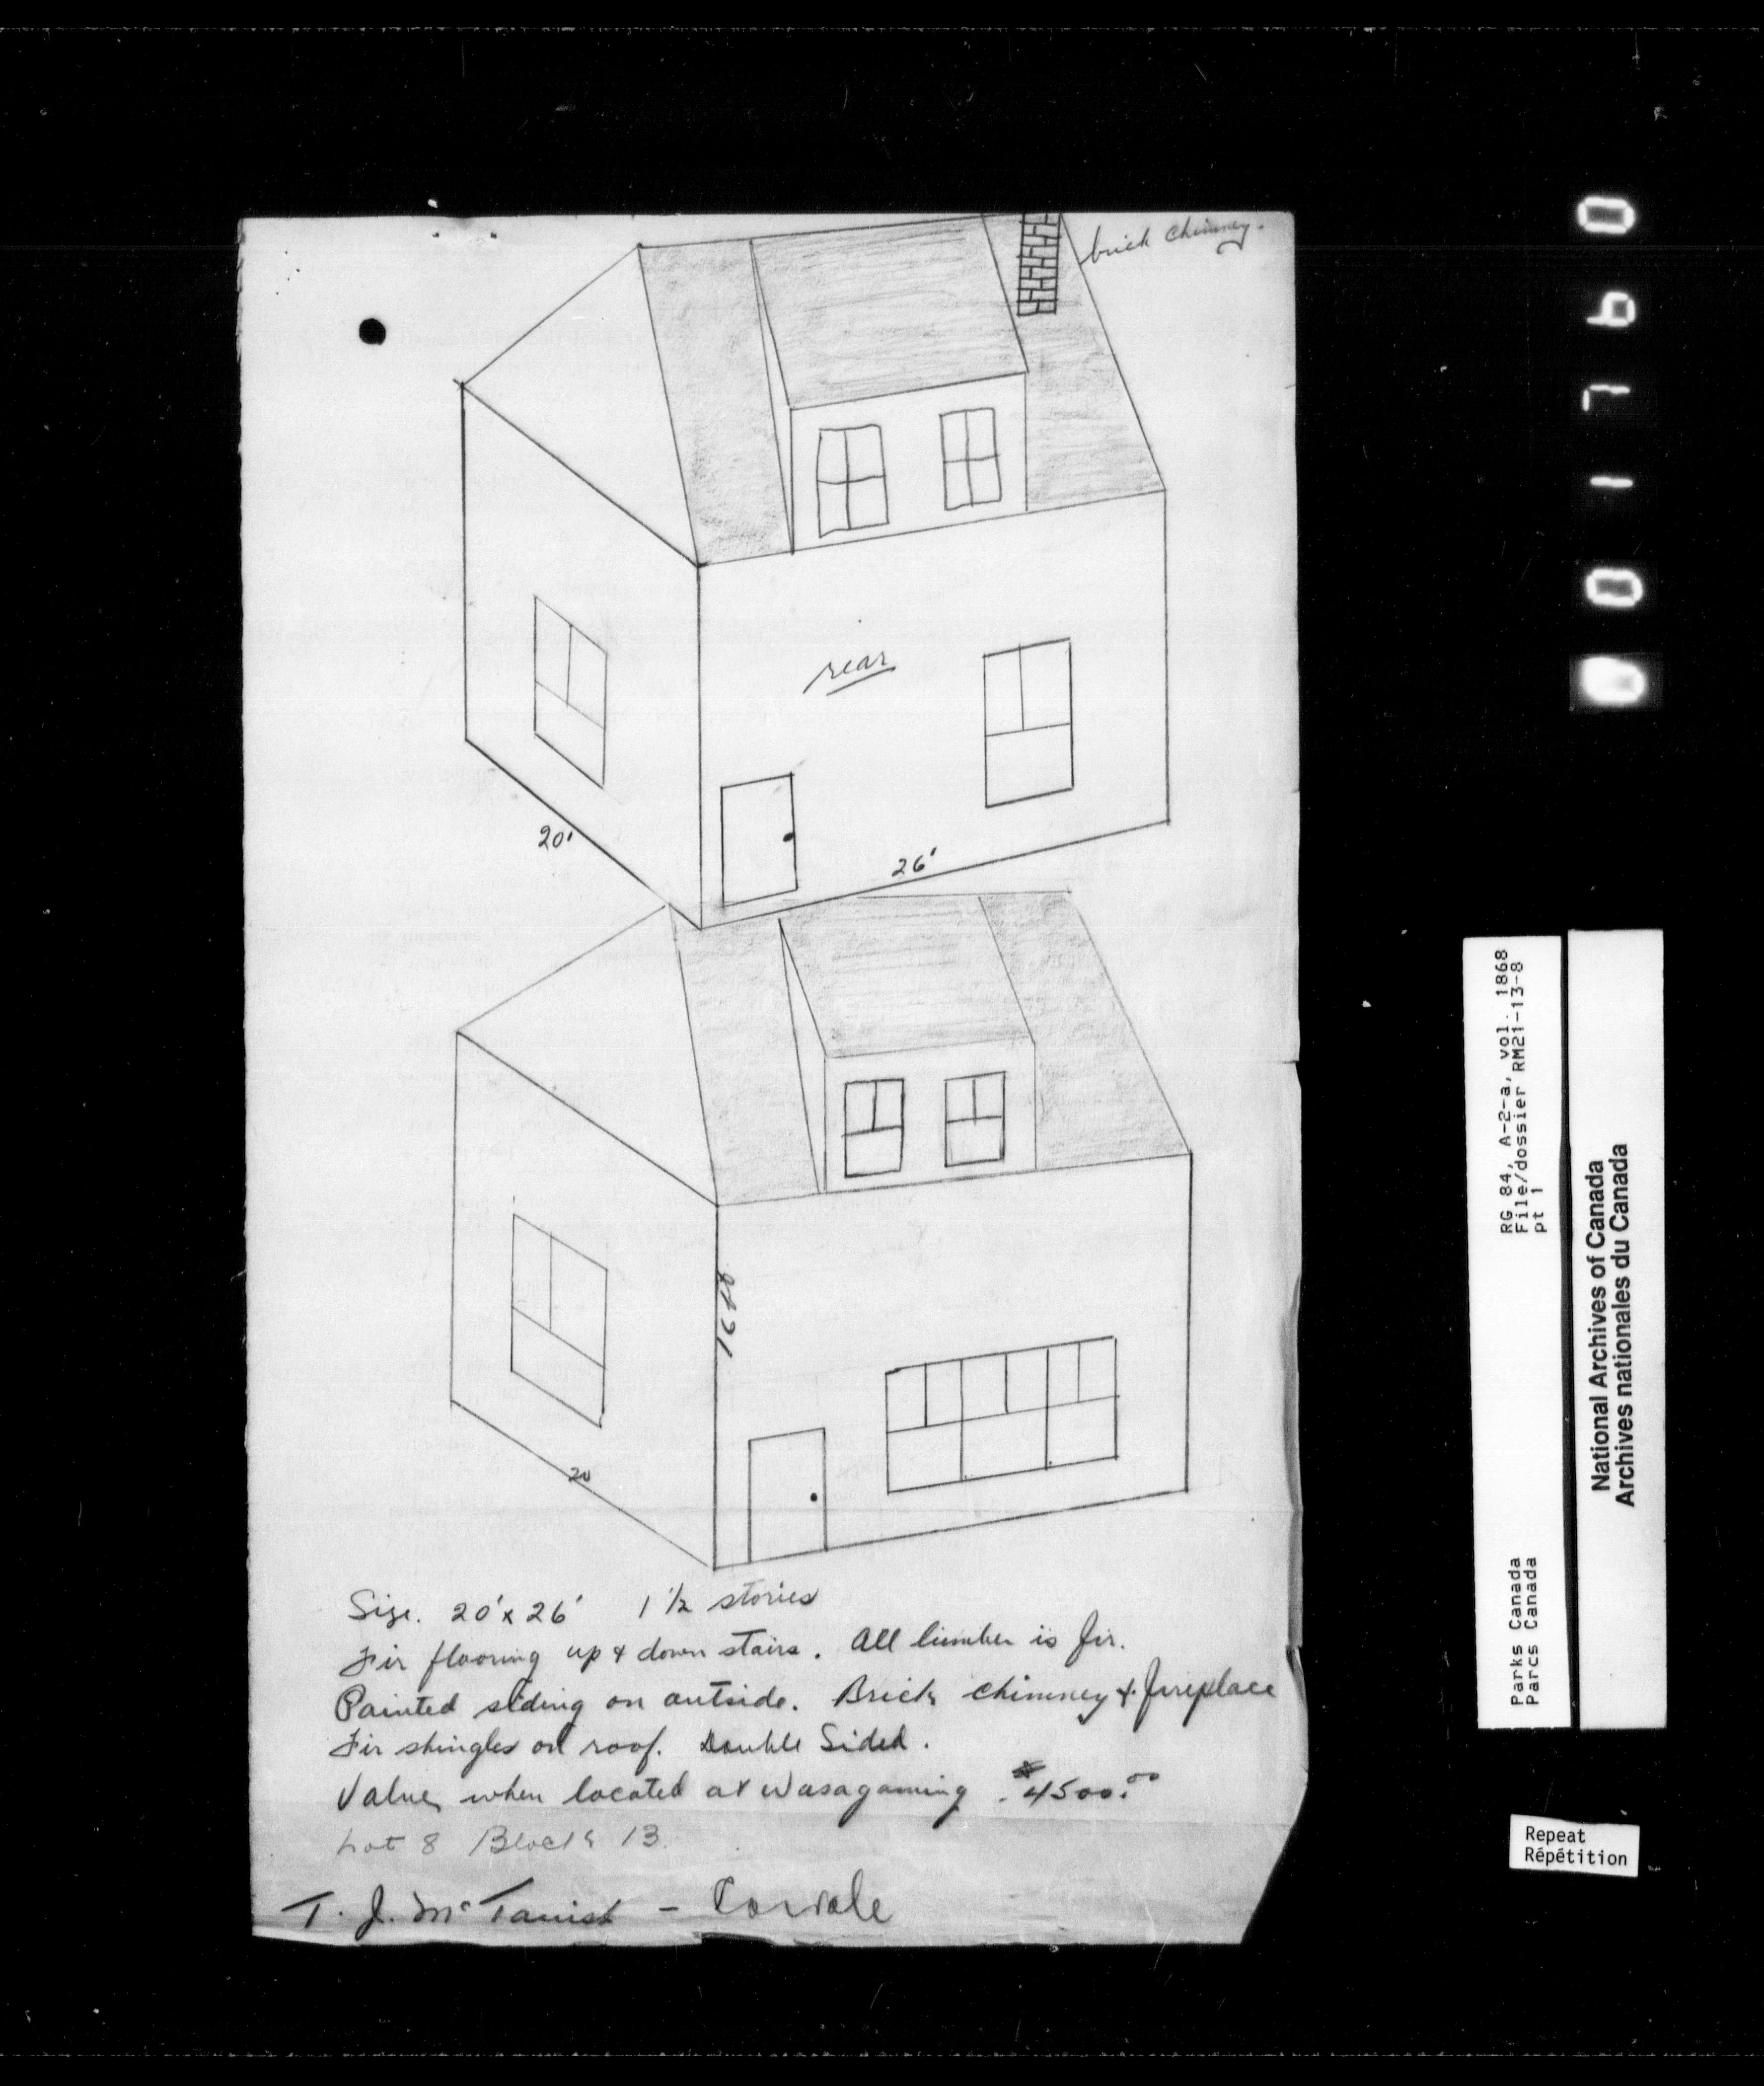 brick chimney.
rear
20'
26'
20
Size. 20' x 26' 1 1/2 stories
Fir flooring up & down stairs. All lumber is fir.
Painted siding on outside. Brick chimney & fireplace
Fir shingles on roof. Double Sided.
Value when located at Wasagaming. $4500.00
Lot 8 Block 13.
T. J. McTavish -
001760
RG 84, A-2-a, vol. 1868
File/dossier RM21-13-8
pt 1
Parks Canada
Parcs Canada
National Archives of Canada
Archives nationales du Canada
Repeat
Répétition